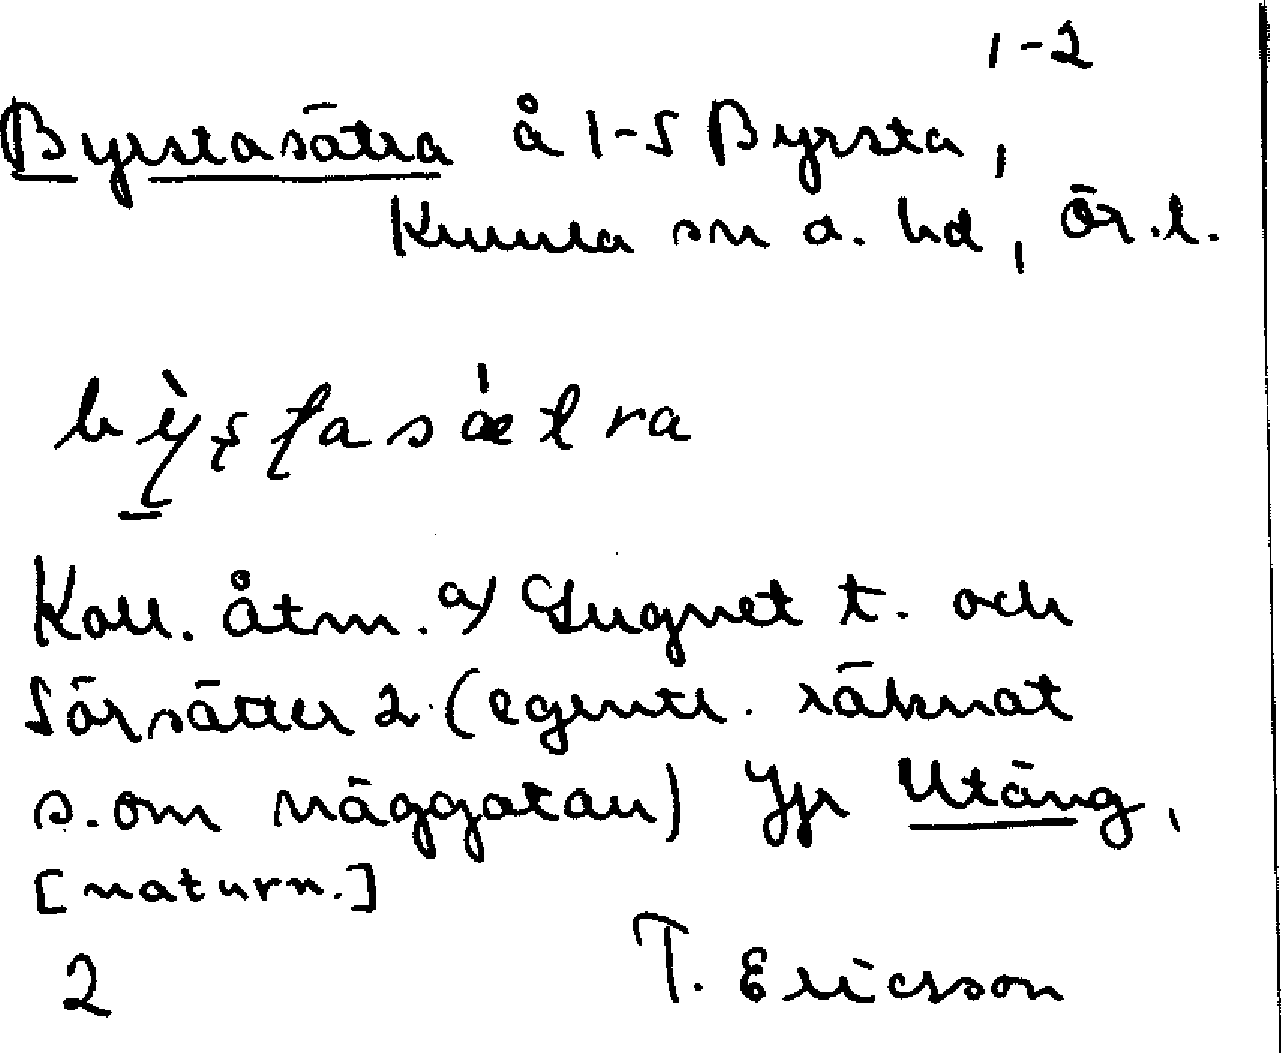 1-2
Byrstasätra å 1-5 Byrsta,
Kumla sn o. hd, Ör.l.
Koll. åtm. a) Lugnet t. och
Sörsätter 2. (egentl. räknat
s. om väggatan) Jfr Utäng,
[naturn.]
2 T. Ericsson